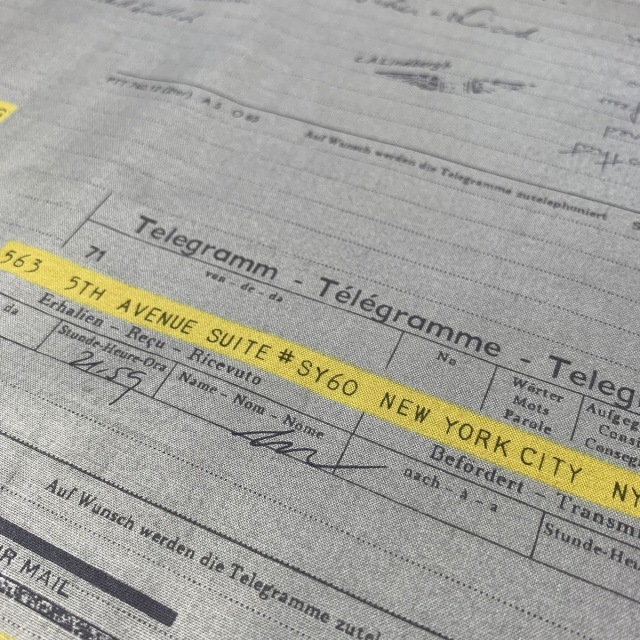 Auf Wunsch werden die Telegramme zutelephoniert
Telegramm - Télégramme - Teleg
71
von - de - da
563 5TH AVENUE SUITE # SY60 NEW YORK CITY NY
No
Wörter
Mots
Parole
Aufgeg
Cons
Conseg
da
Erhalten - Reçu - Ricevuto
Befördert - Transmi
Stunde-Heure-Ora
Name - Nom - Nome
nach - à - a
Stunde-Heu
Auf Wunsch werden die Telegramme zutel
R MAIL